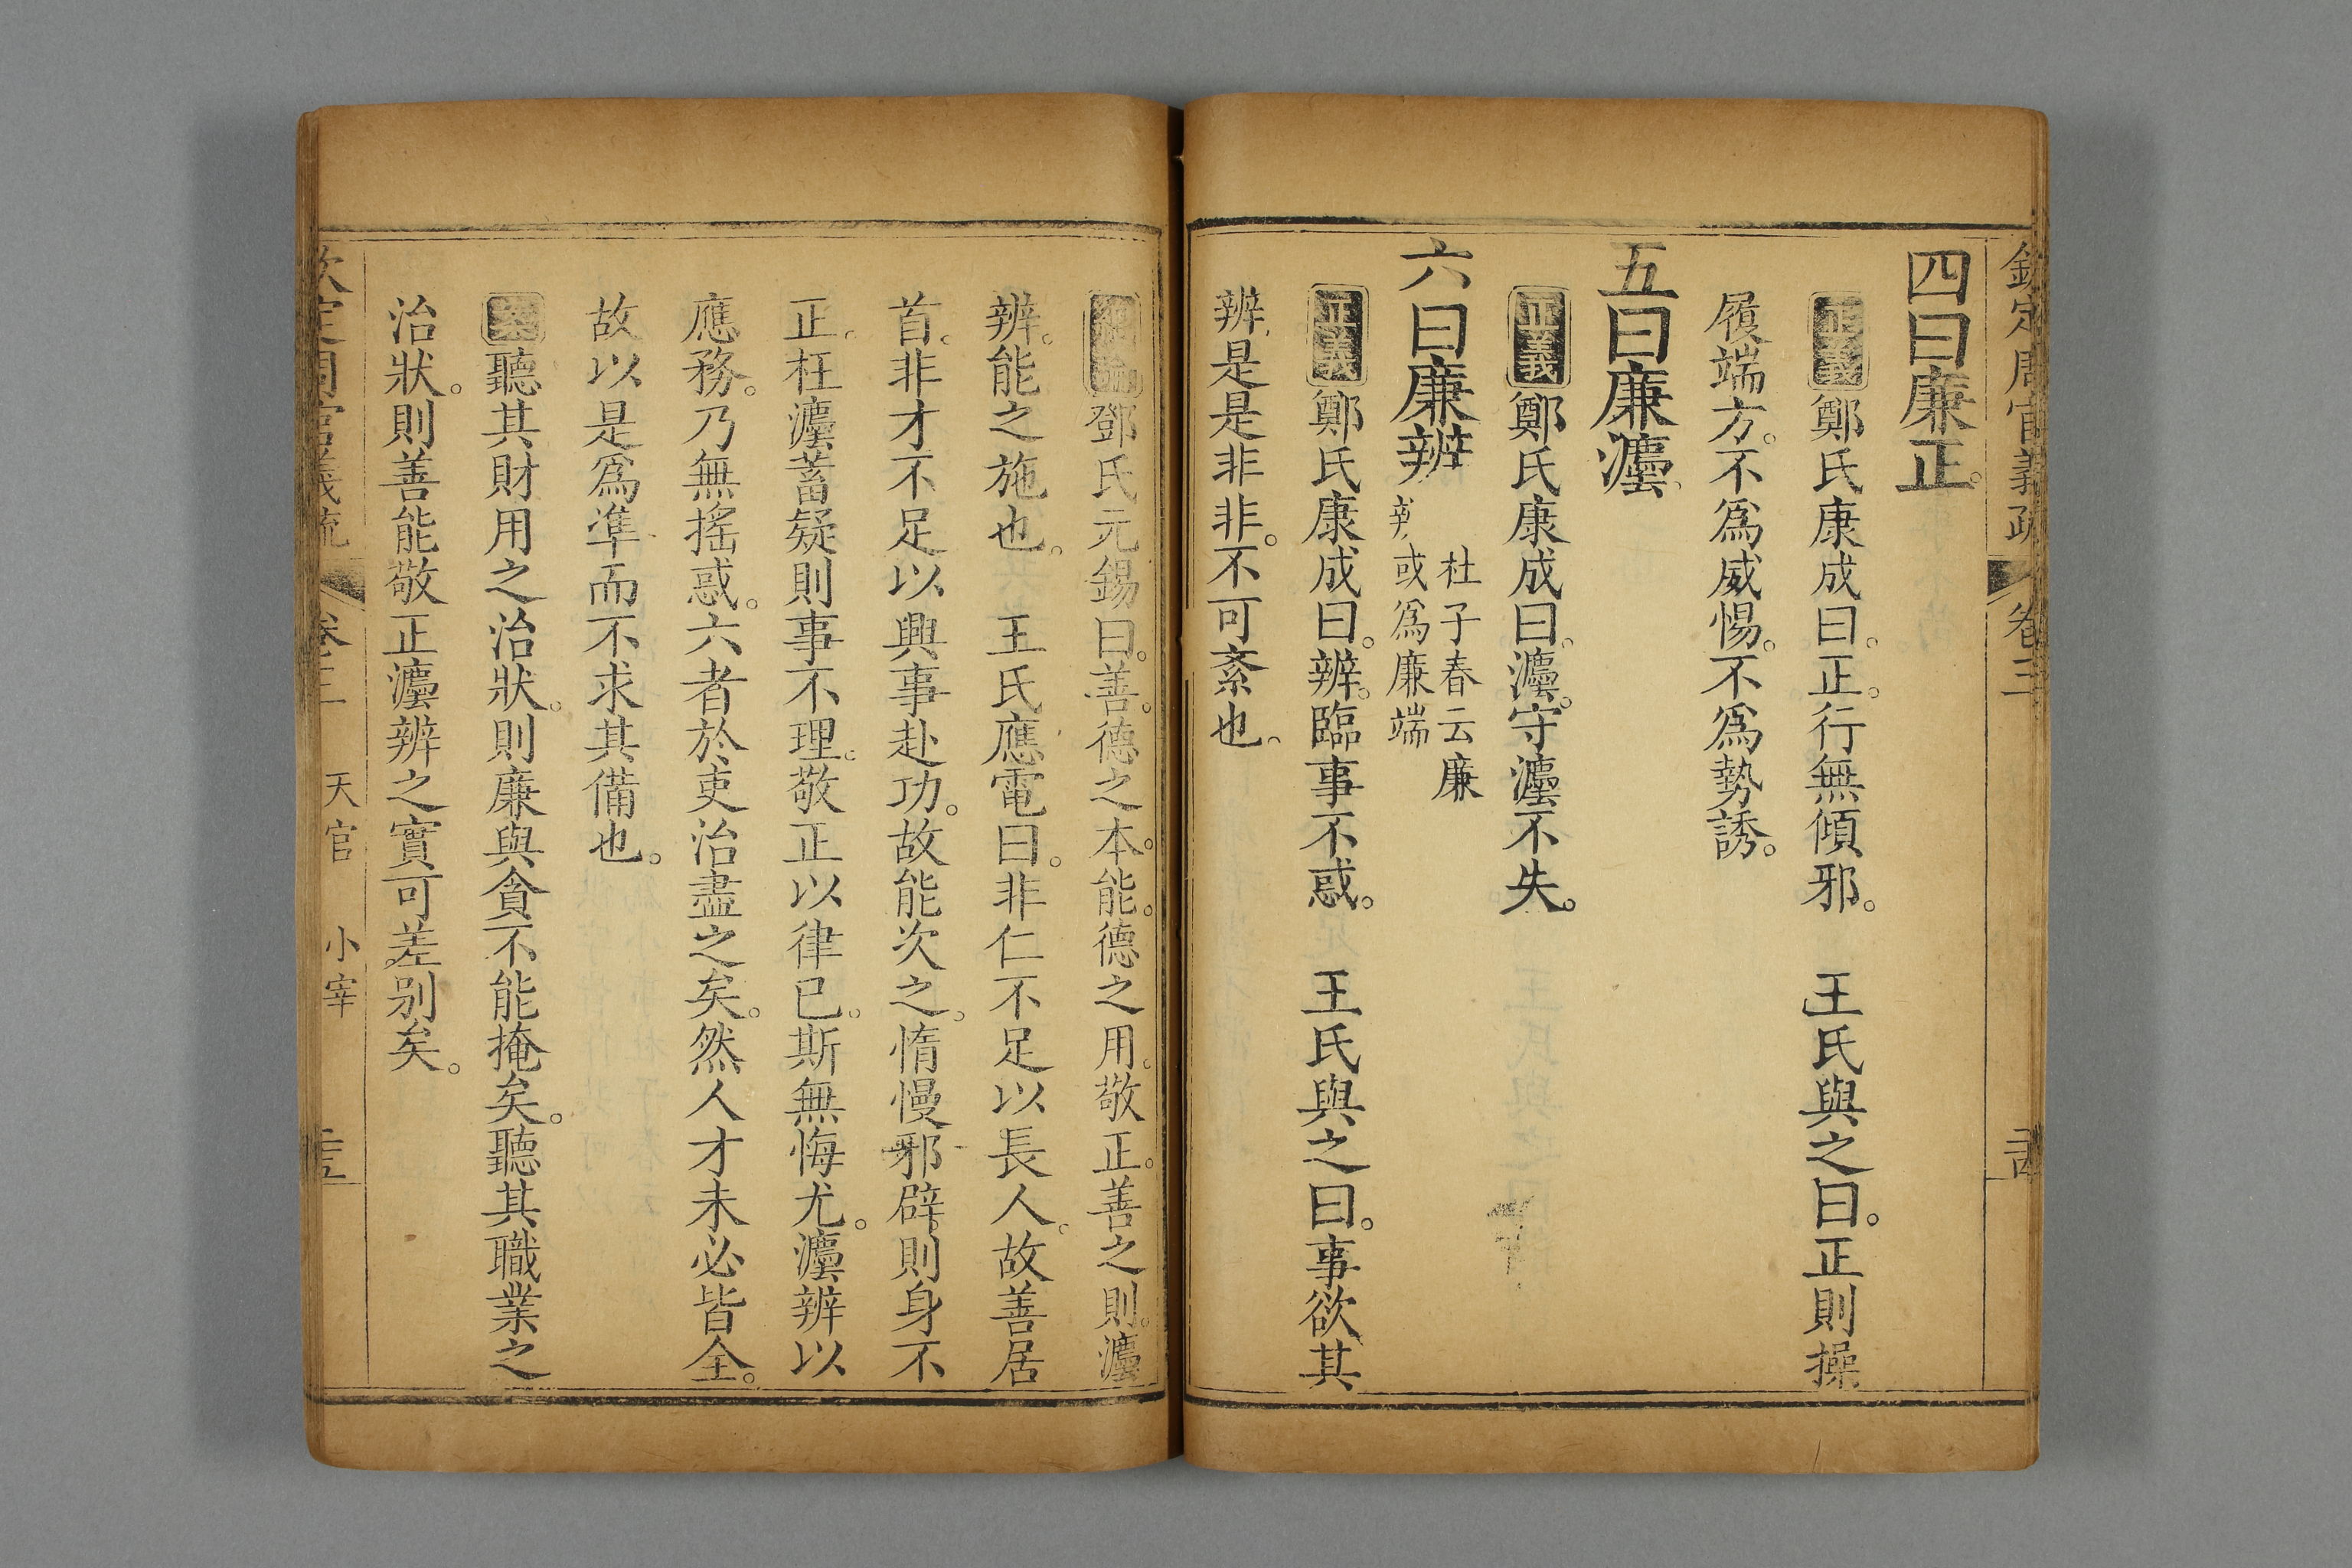 欽定周官義疏 卷三
四曰廉正。
正義鄭氏康成曰。正。行無傾邪。 王氏與之曰。正則操
履端方。不爲威惕。不爲勢誘。
五曰廉灋。
正義鄭氏康成曰。灋。守灋不失。
六曰廉辨 杜子春云廉
辨或爲廉端
正義鄭氏康成曰。辨。臨事不惑。 王氏與之曰。事欲其
辨。是是非非。不可紊也。
總論鄧氏元錫曰。善。德之本。能。德之用。敬正。善之則。灋
辨。能之施也。 王氏應電曰。非仁不足以長人。故善居
首。非才不足以興事赴功。故能次之。惰慢邪辟。則身不
正。枉灋蓄疑則事不理。敬正以律已。斯無悔尤。灋辨以
應務。乃無搖惑。六者於吏治盡之矣。然人才未必皆全。
故以是爲準而不求其備也。
案聽其財用之治狀。則廉與貪不能掩矣。聽其職業之
治狀。則善能敬正灋辨之實可差别矣。
欽定周官義疏 卷三 天官 小宰